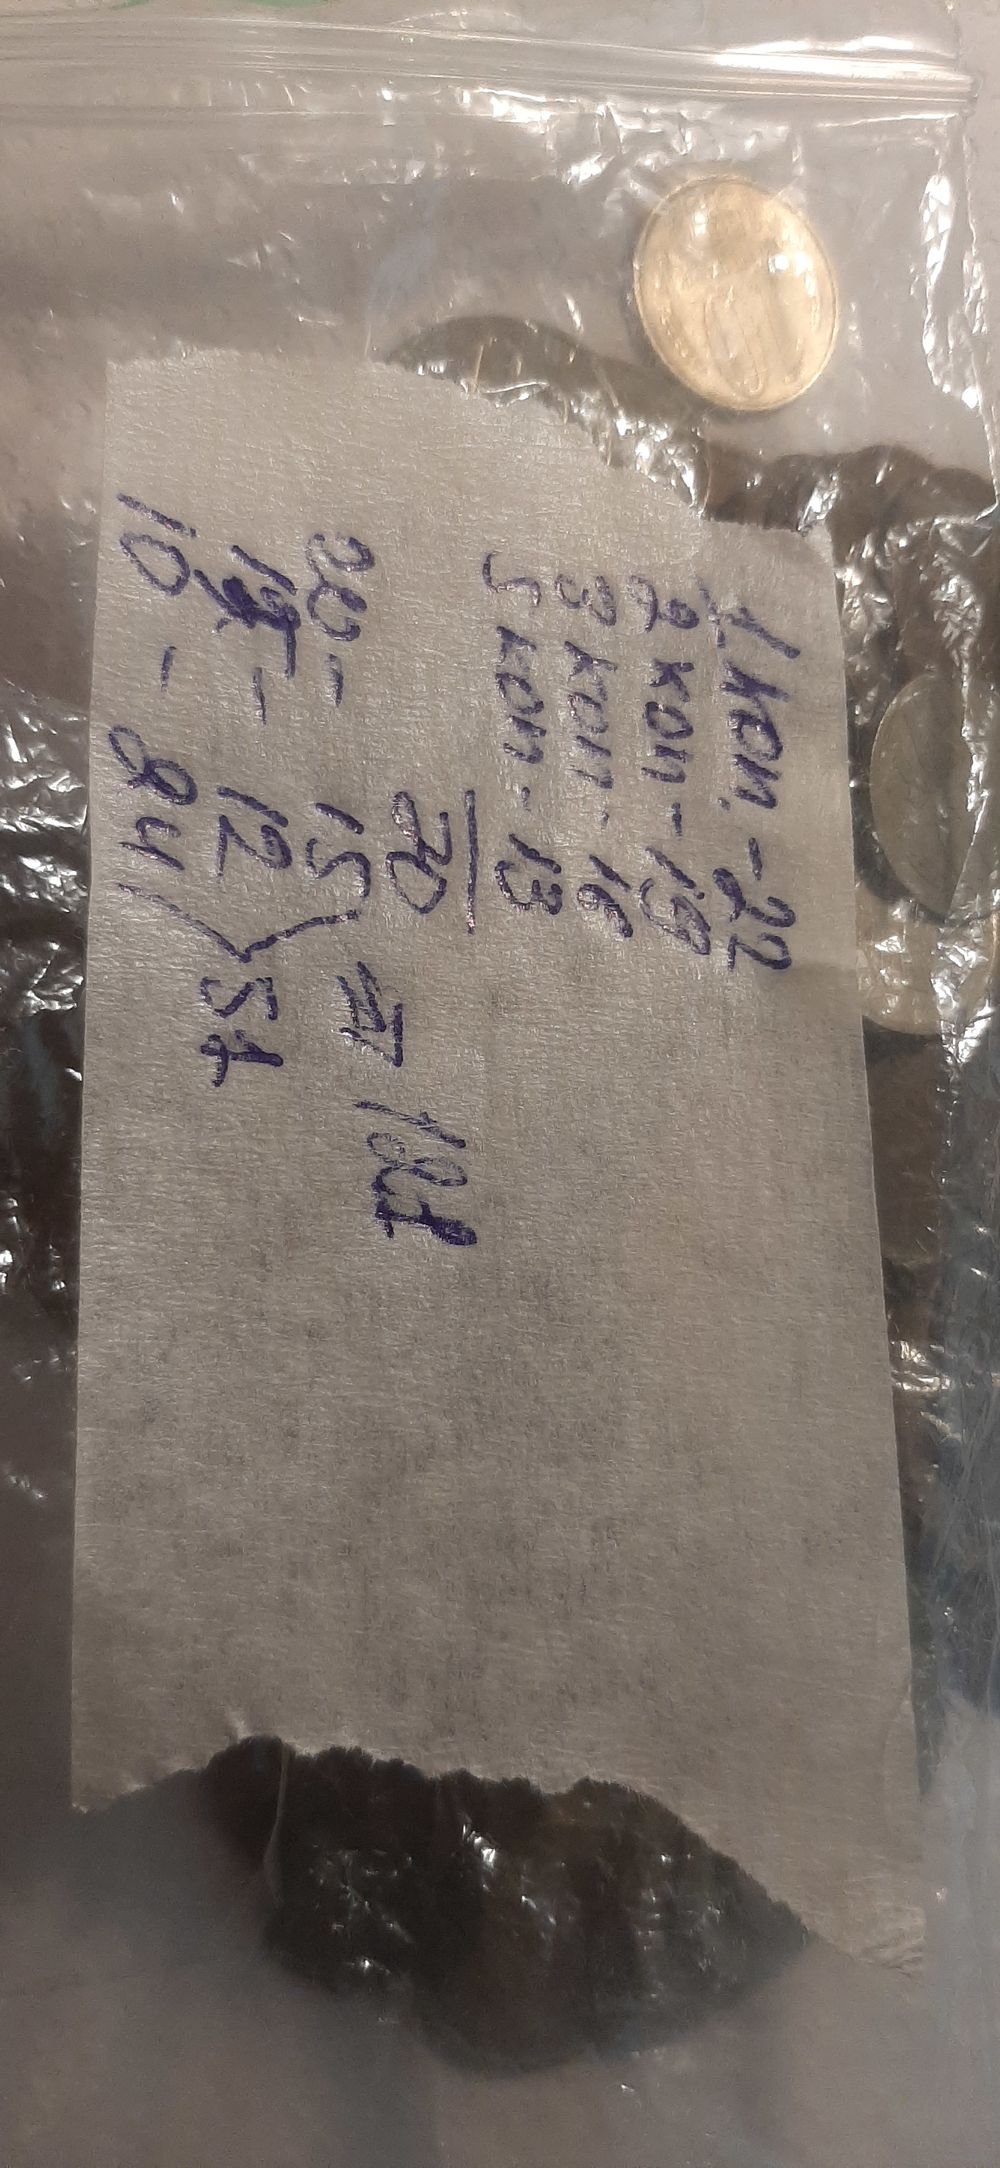 1 коп. - 22
2 коп - 19
3 коп - 16
5 коп - 13
70
Σ 121
20 - 15
15 - 12
10 - 24
51